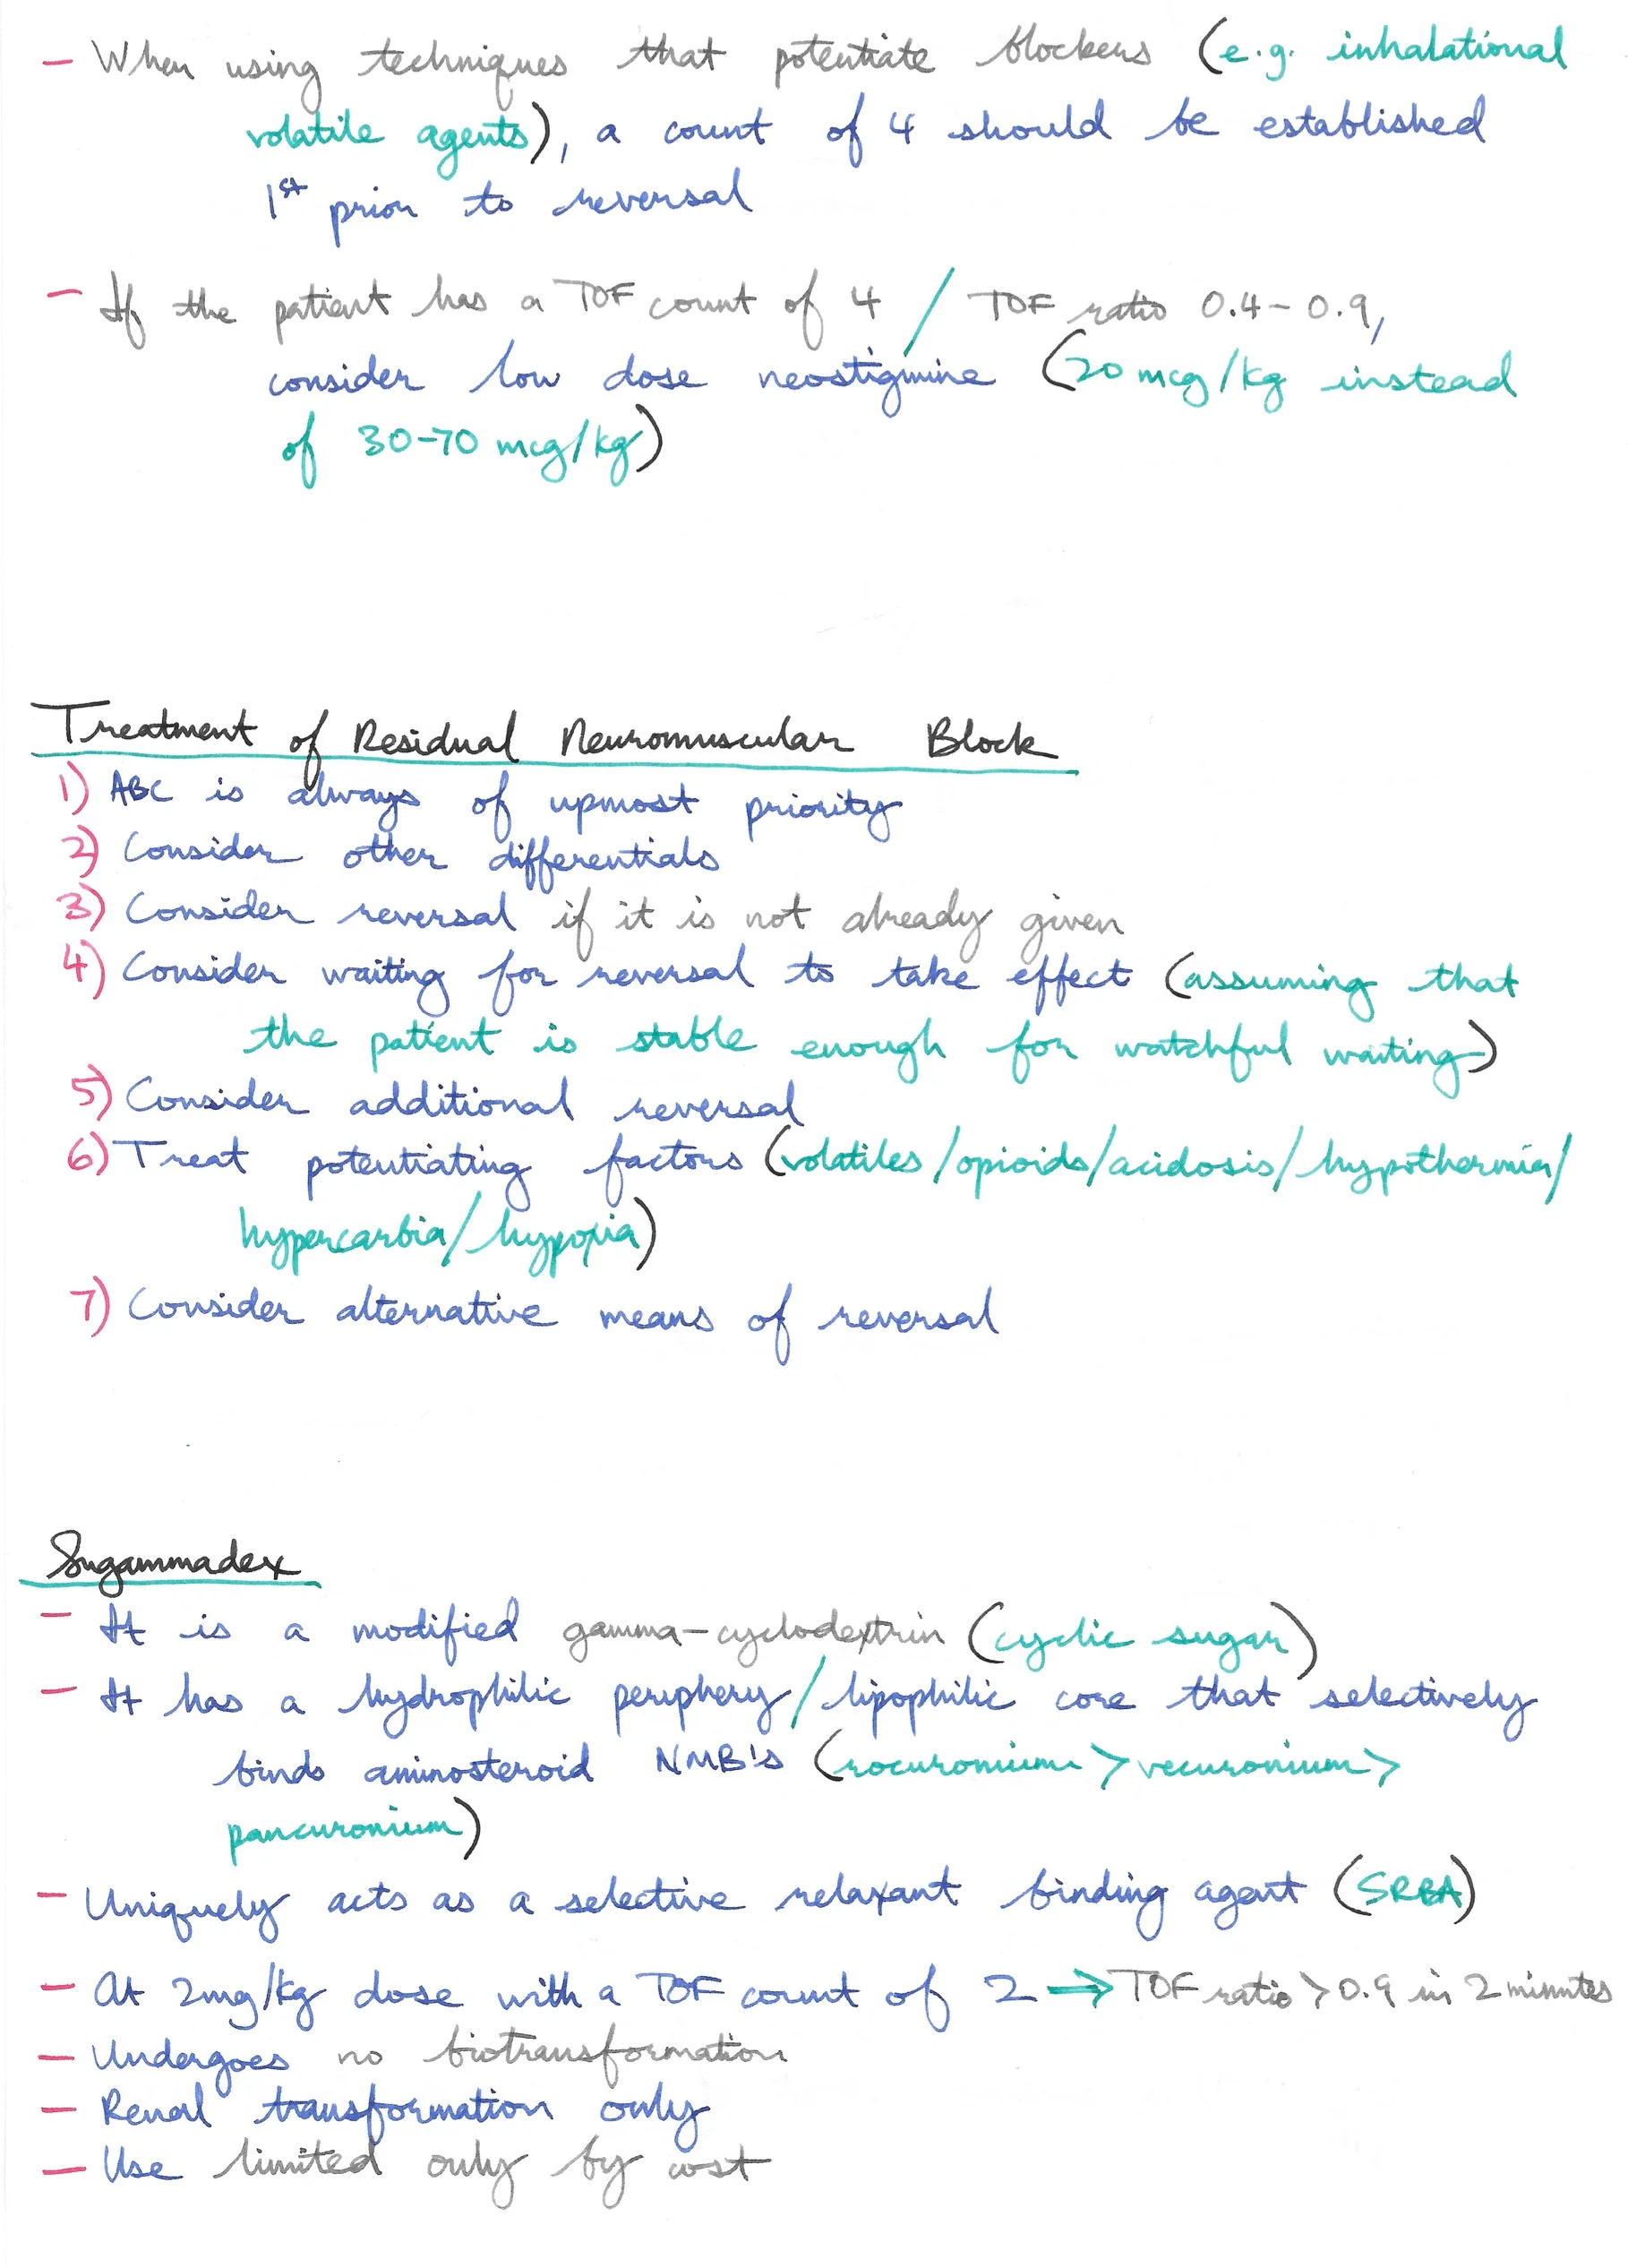 - When using techniques that potentiate blockers (e.g. inhalational
volatile agents), a count of 4 should be established
1st prior to reversal
- If the patient has a TOF count of 4 / TOF ratio 0.4-0.9,
consider low dose neostigmine (20 mcg/kg instead
of 30-70 mcg/kg)
Treatment of Residual Neuromuscular Block
1) ABC is always of upmost priority
2) Consider other differentials
3) Consider reversal if it is not already given
4) Consider waiting for reversal to take effect (assuming that
the patient is stable enough for watchful waiting)
5) Consider additional reversal
6) Treat potentiating factors (volatiles/opioids/acidosis/hypothermia/
hypercarbia/hypoxia)
7) Consider alternative means of reversal
Sugammadex
- It is a modified gamma-cyclodextrin (cyclic sugar)
- It has a hydrophilic periphery/lipophilic core that selectively
binds aminosteroid NMB's (rocuronium > vecuronium >
pancuronium)
- Uniquely acts as a selective relaxant binding agent (SRBA)
- At 2mg/kg dose with a TOF count of 2 → TOF ratio > 0.9 in 2 minutes
- Undergoes no biotransformation
- Renal transformation only
- Use limited only by cost